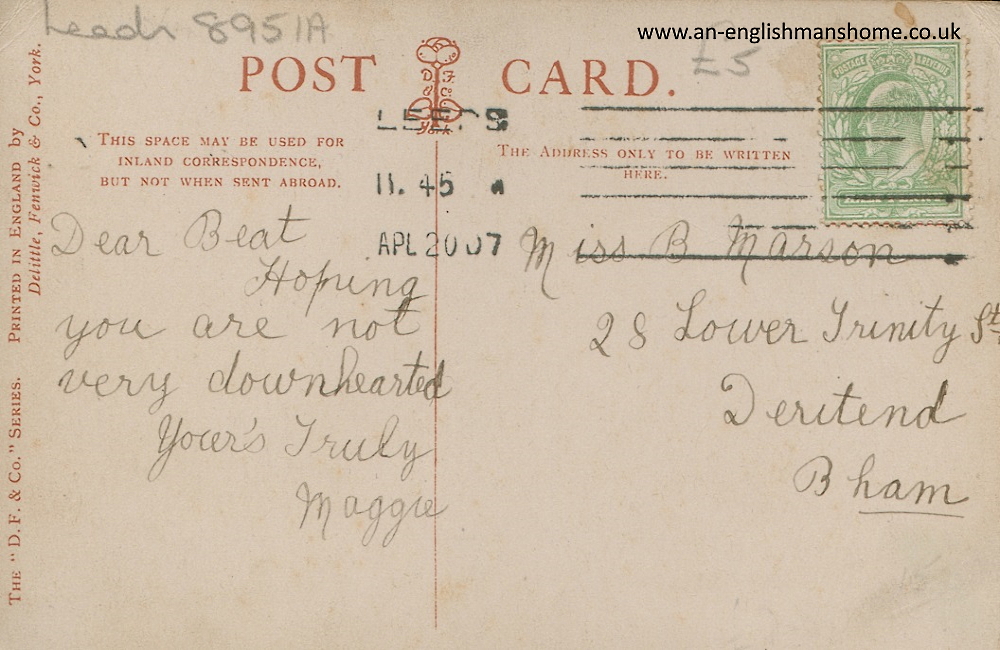 8951A
www.an-englishmanshome.co.uk
£5
POST CARD.
D. F. & Co. York
POSTAGE REVENUE
LEEDS
11. 45 A
APL 20 07
THIS SPACE MAY BE USED FOR
INLAND CORRESPONDENCE,
BUT NOT WHEN SENT ABROAD.
THE ADDRESS ONLY TO BE WRITTEN
HERE.
Dear Beat
Hoping
you are not
very downhearted
Your's Truly
Maggie
Miss B Marson
28 Lower Trinity St.
Deritend
Bham
THE "D. F. & CO." SERIES. PRINTED IN ENGLAND by
Delittle, Fenwick & Co., York.